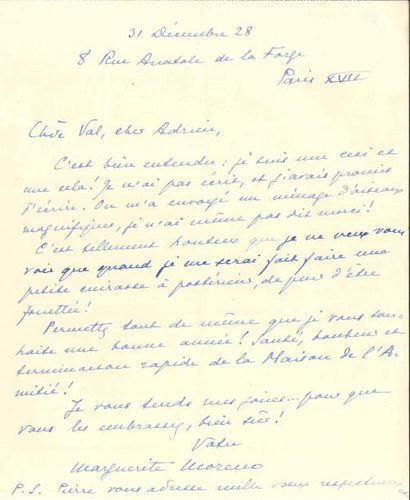 31 Décembre 28
8 Rue Anatole de la Forge
Paris XVII
Chère Val, cher Adrien,
C'est bien entendu : je suis une ceci et
une cela ! Je n'ai pas écrit, et j'avais promis
d'écrire. On m'a envoyé un ménage d'oiseaux
magnifiques, je n'ai même pas dit merci !
C'est tellement honteux que je ne veux vous
voir que quand je me serai fait faire une
petite cuirasse à postérieur, de peur d'être
fouettée !
Permettez tout de même que je vous sou-
haite une bonne année ! Santé, bonheur et
terminaison rapide de la Maison de l'A-
mitié !
Je vous tends mes joues... pour que
vous les embrassiez, bien sûr !
Votre
Marguerite Moreno
P.S. Pierre vous adresse mille vœux respectueux